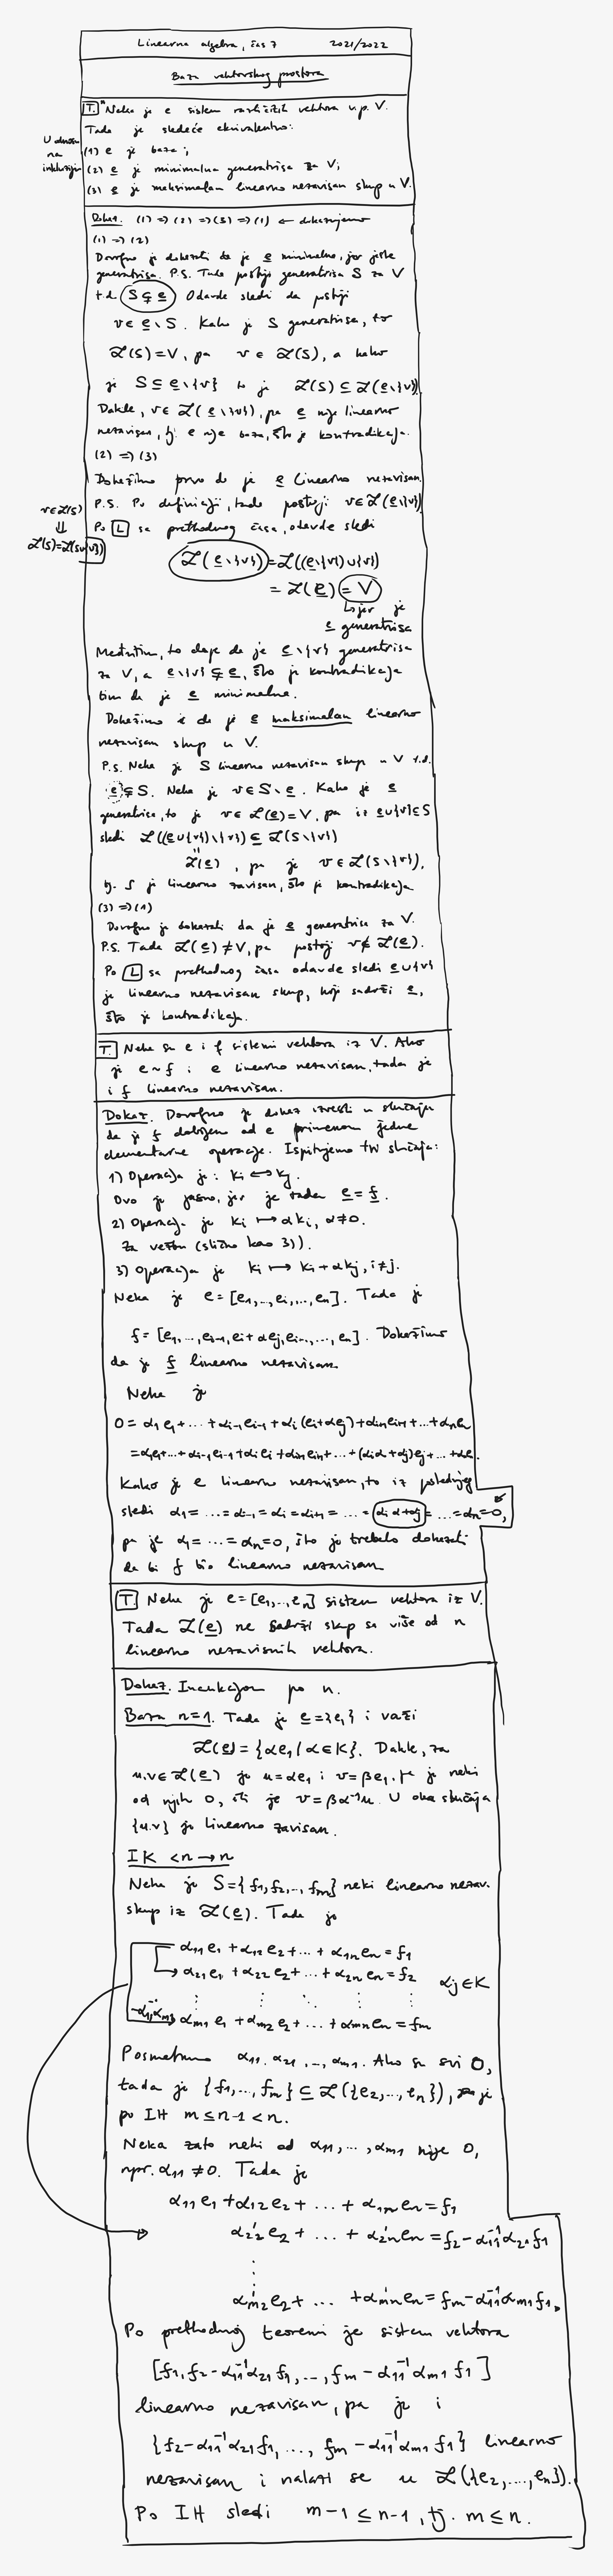 Linearna algebra, čas 7 2021/2022
Baza vektorskog prostora
T. Neka je e sistem različitih vektora v.p. V.
Tada je sledeće ekvivalentno:
U odnosu
na
inkluziju
(1) e je baza;
(2) e je minimalna generatrisa za V;
(3) e je maksimalan linearno nezavisan skup u V.
Dokaz. (1) => (2) => (3) => (1) ← dokazujemo
(1) => (2)
Dovoljno je dokazati da je e minimalna, jer jeste
generatrisa. P.S. Tada postoji generatrisa S za V
t.d. S ⊊ e. Odavde sledi da postoji
v ∈ e \ S. Kako je S generatrisa, to
L(S) = V, pa v ∈ L(S), a kako
je S ⊆ e\{v} to je L(S) ⊆ L(e\{v})
Dakle, v ∈ L(e\{v}), pa e nije linearno
nezavisan, tj. e nije baza, što je kontradikcija.
(2) => (3)
Dokažimo prvo da je e linearno nezavisan.
P.S. Po definiciji, tada postoji v ∈ L(e\{v})
v ∈ L(S)
⇓
L(S) = L(S∪{v})
Po L sa prethodnog časa, odavde sledi
L(e\{v}) = L((e\{v}) ∪ {v})
= L(e) = V
↳ jer je
e generatrisa
Međutim, to daje da je e\{v} generatrisa
za V, a e\{v} ⊊ e, što je kontradikcija
tim da je e minimalna.
Dokažimo i da je e maksimalan linearno
nezavisan skup u V.
P.S. Neka je S linearno nezavisan skup u V t.d.
e ⊊ S. Neka je v ∈ S \ e. Kako je e
generatrisa, to je v ∈ L(e) = V, pa iz e∪{v} ⊆ S
sledi L((e∪{v})\{v}) ⊆ L(S\{v})
"
L(e) , pa je v ∈ L(S\{v}),
tj. S je linearno zavisan, što je kontradikcija
(3) => (1)
Dovoljno je dokazati da je e generatrisa za V.
P.S. Tada L(e) ≠ V, pa postoji v ∉ L(e).
Po L sa prethodnog časa odavde sledi e∪{v}
je linearno nezavisan skup, koji sadrži e,
što je kontradikcija.
T. Neka su e i f sistemi vektora iz V. Ako
je e ~ f i e linearno nezavisan, tada je
i f linearno nezavisan.
Dokaz. Dovoljno je dokaz izvesti u slučaju
da je f dobijen od e primenom jedne
elementarne operacije. Ispitujemo tri slučaja:
1) Operacija je: Ki ↔ Kj.
Ovo je jasno, jer je tada e = f.
2) Operacija je Ki ↦ αKi, α ≠ 0.
Za vežbu (slično kao 3)).
3) Operacija je Ki ↦ Ki + αKj, i ≠ j.
Neka je e = [e1, ..., ei, ..., en]. Tada je
f = [e1, ..., ei-1, ei + αej, ei+1, ..., en]. Dokažimo
da je f linearno nezavisan.
Neka je
0 = α1e1 + ... + αi-1ei-1 + αi(ei + αej) + αi+1ei+1 + ... + αnen
= α1e1 + ... + αi-1ei-1 + αiei + αi+1ei+1 + ... + (αiα + αj)ej + ... + αnen.
Kako je e linearno nezavisan, to iz poslednjeg
sledi α1 = ... = αi-1 = αi = αi+1 = ... = αiα + αj = ... = αn = 0,
pa je α1 = ... = αn = 0, što je trebalo dokazati
da bi f bio linearno nezavisan.
T. Neka je e = [e1, ..., en] sistem vektora iz V.
Tada L(e) ne sadrži skup sa više od n
linearno nezavisnih vektora.
Dokaz. Indukcijom po n.
Baza n=1. Tada je e = {e1} i važi
L(e) = {αe1 | α ∈ K}. Dakle, za
u,v ∈ L(e) je u = αe1 i v = βe1, pa je neki
od njih 0, ili je v = βα⁻¹u. U oba slučaja
{u,v} je linearno zavisan.
IK <n → n
Neka je S = {f1, f2, ..., fm} neki linearno nezav.
skup iz L(e). Tada je
α11e1 + α12e2 + ... + α1nen = f1
α21e1 + α22e2 + ... + α2nen = f2 αij ∈ K
⋮ ⋮ ⋱ ⋮ ⋮
-α11⁻¹αm1 αm1e1 + αm2e2 + ... + αmnen = fm
Posmatramo α11, α21, ..., αm1. Ako su svi 0,
tada je {f1, ..., fm} ⊆ L({e2, ..., en}), pa je
po IH m ≤ n-1 < n.
Neka zato neki od α11, ..., αm1 nije 0,
npr. α11 ≠ 0. Tada je
α11e1 + α12e2 + ... + α1nen = f1
α'22e2 + ... + α'2nen = f2 - α11⁻¹α21f1
⋮
α'm2e2 + ... + α'mnen = fm - α11⁻¹αm1f1.
Po prethodnoj teoremi je sistem vektora
[f1, f2 - α11⁻¹α21f1, ..., fm - α11⁻¹αm1f1]
linearno nezavisan, pa je i
{f2 - α11⁻¹α21f1, ..., fm - α11⁻¹αm1f1} linearno
nezavisan i nalazi se u L({e2, ..., en}).
Po IH sledi m-1 ≤ n-1, tj. m ≤ n.